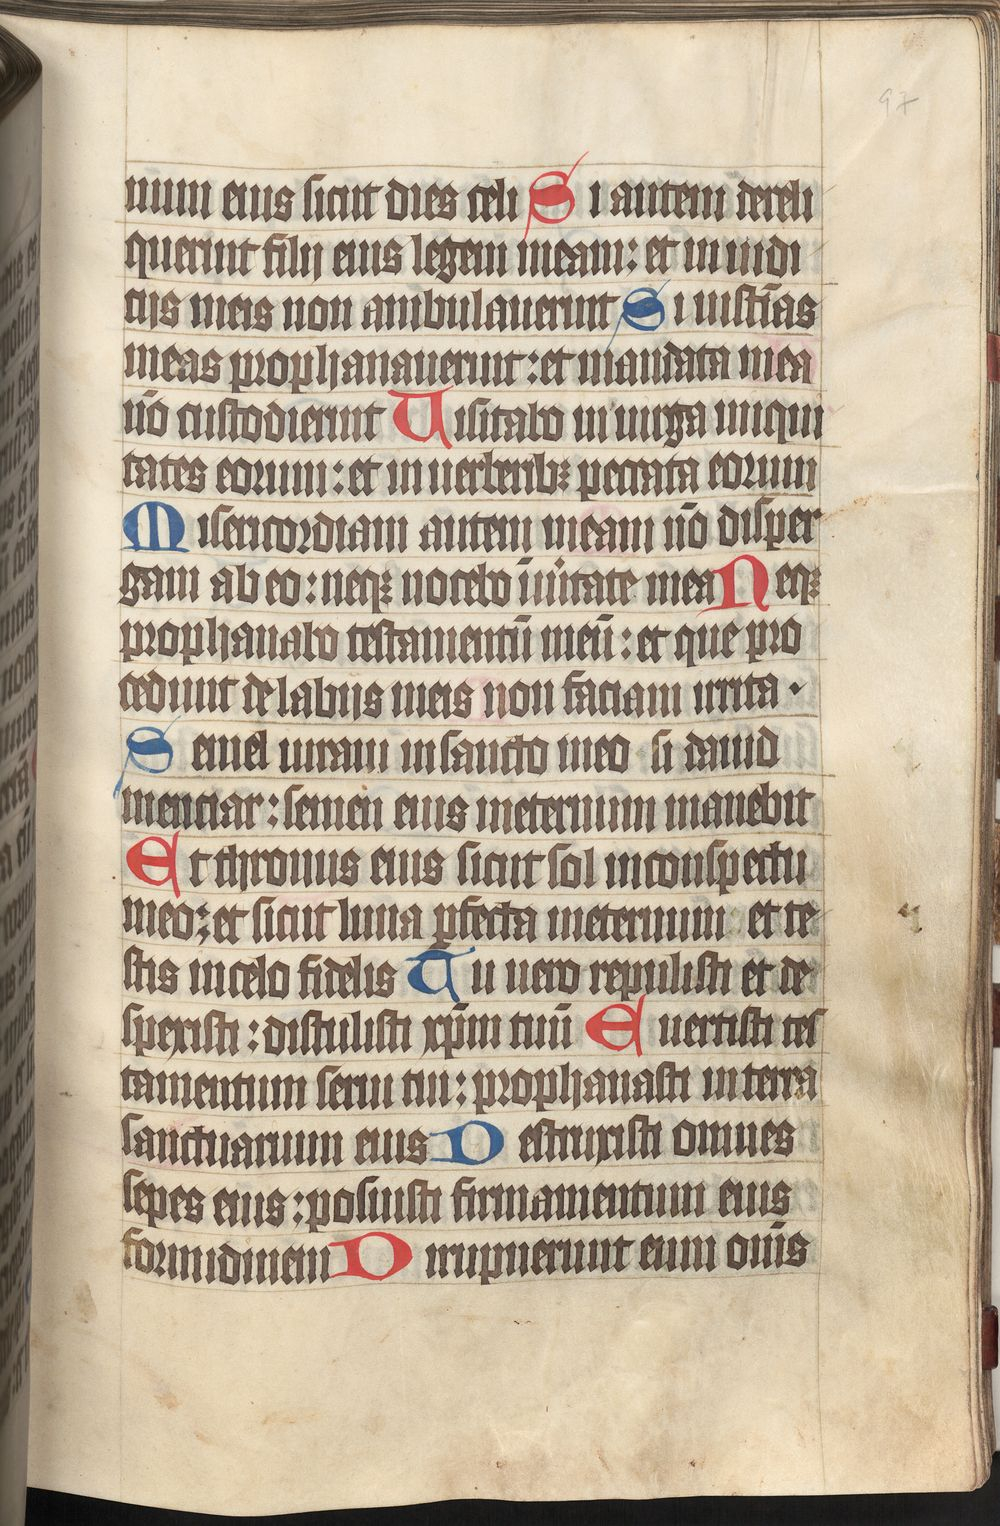 97
num eius sicut dies celi Si autem dereli
querint filij eius legem meam: et in iudi
cijs meis non ambulauerint Si iustīas
meas prophanauerint: et mandata mea
nō custodierint Uisitabo in uirga iniqui
tates eorum: et in uerberibꝫ peccata eorum
Misericordiam autem meam nō disper
gam ab eo: neqꝫ nocebo in ūitate mea Neqꝫ
prophanabo testamentū meū: et que pro
cedunt de labijs meis non faciam irrita ·
Semel iuraui in sancto meo si dauid
menciar: semen eius ineternum manebit
Et thronus eius sicut sol inconspectu
meo: et sicut luna ꝑfecta ineternum et te
stis incelo fidelis Tu uero repulisti et de
spexisti: distulisti xp̄m tuū Euertisti tes
tamentum serui tui: prophanasti in terra
sanctuarium eius Destruxisti omnes
sepes eius: posuisti firmamentum eius
formidinem Diripuerunt eum om̄s